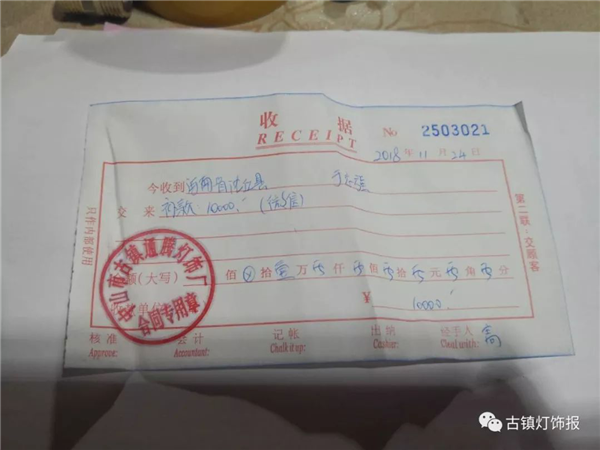 收 据
RECEIPT
No 2503021
2018 年 11 月 24 日
今收到 河南省
交 来 10000.- (微信)
额(大写) 佰 ⊗ 拾 壹 万 零 仟 零 佰 零 拾 零 元 零 角 零 分
单位
¥ 10000.-
核 准 会 计 记 帐 出 纳 经手人 高
Approve: Accountant: Chalk it up: Cashier: Deal with:
只作内部使用
第二联:交顾客
中山市古镇通腾灯饰厂
合同专用章
古镇灯饰报